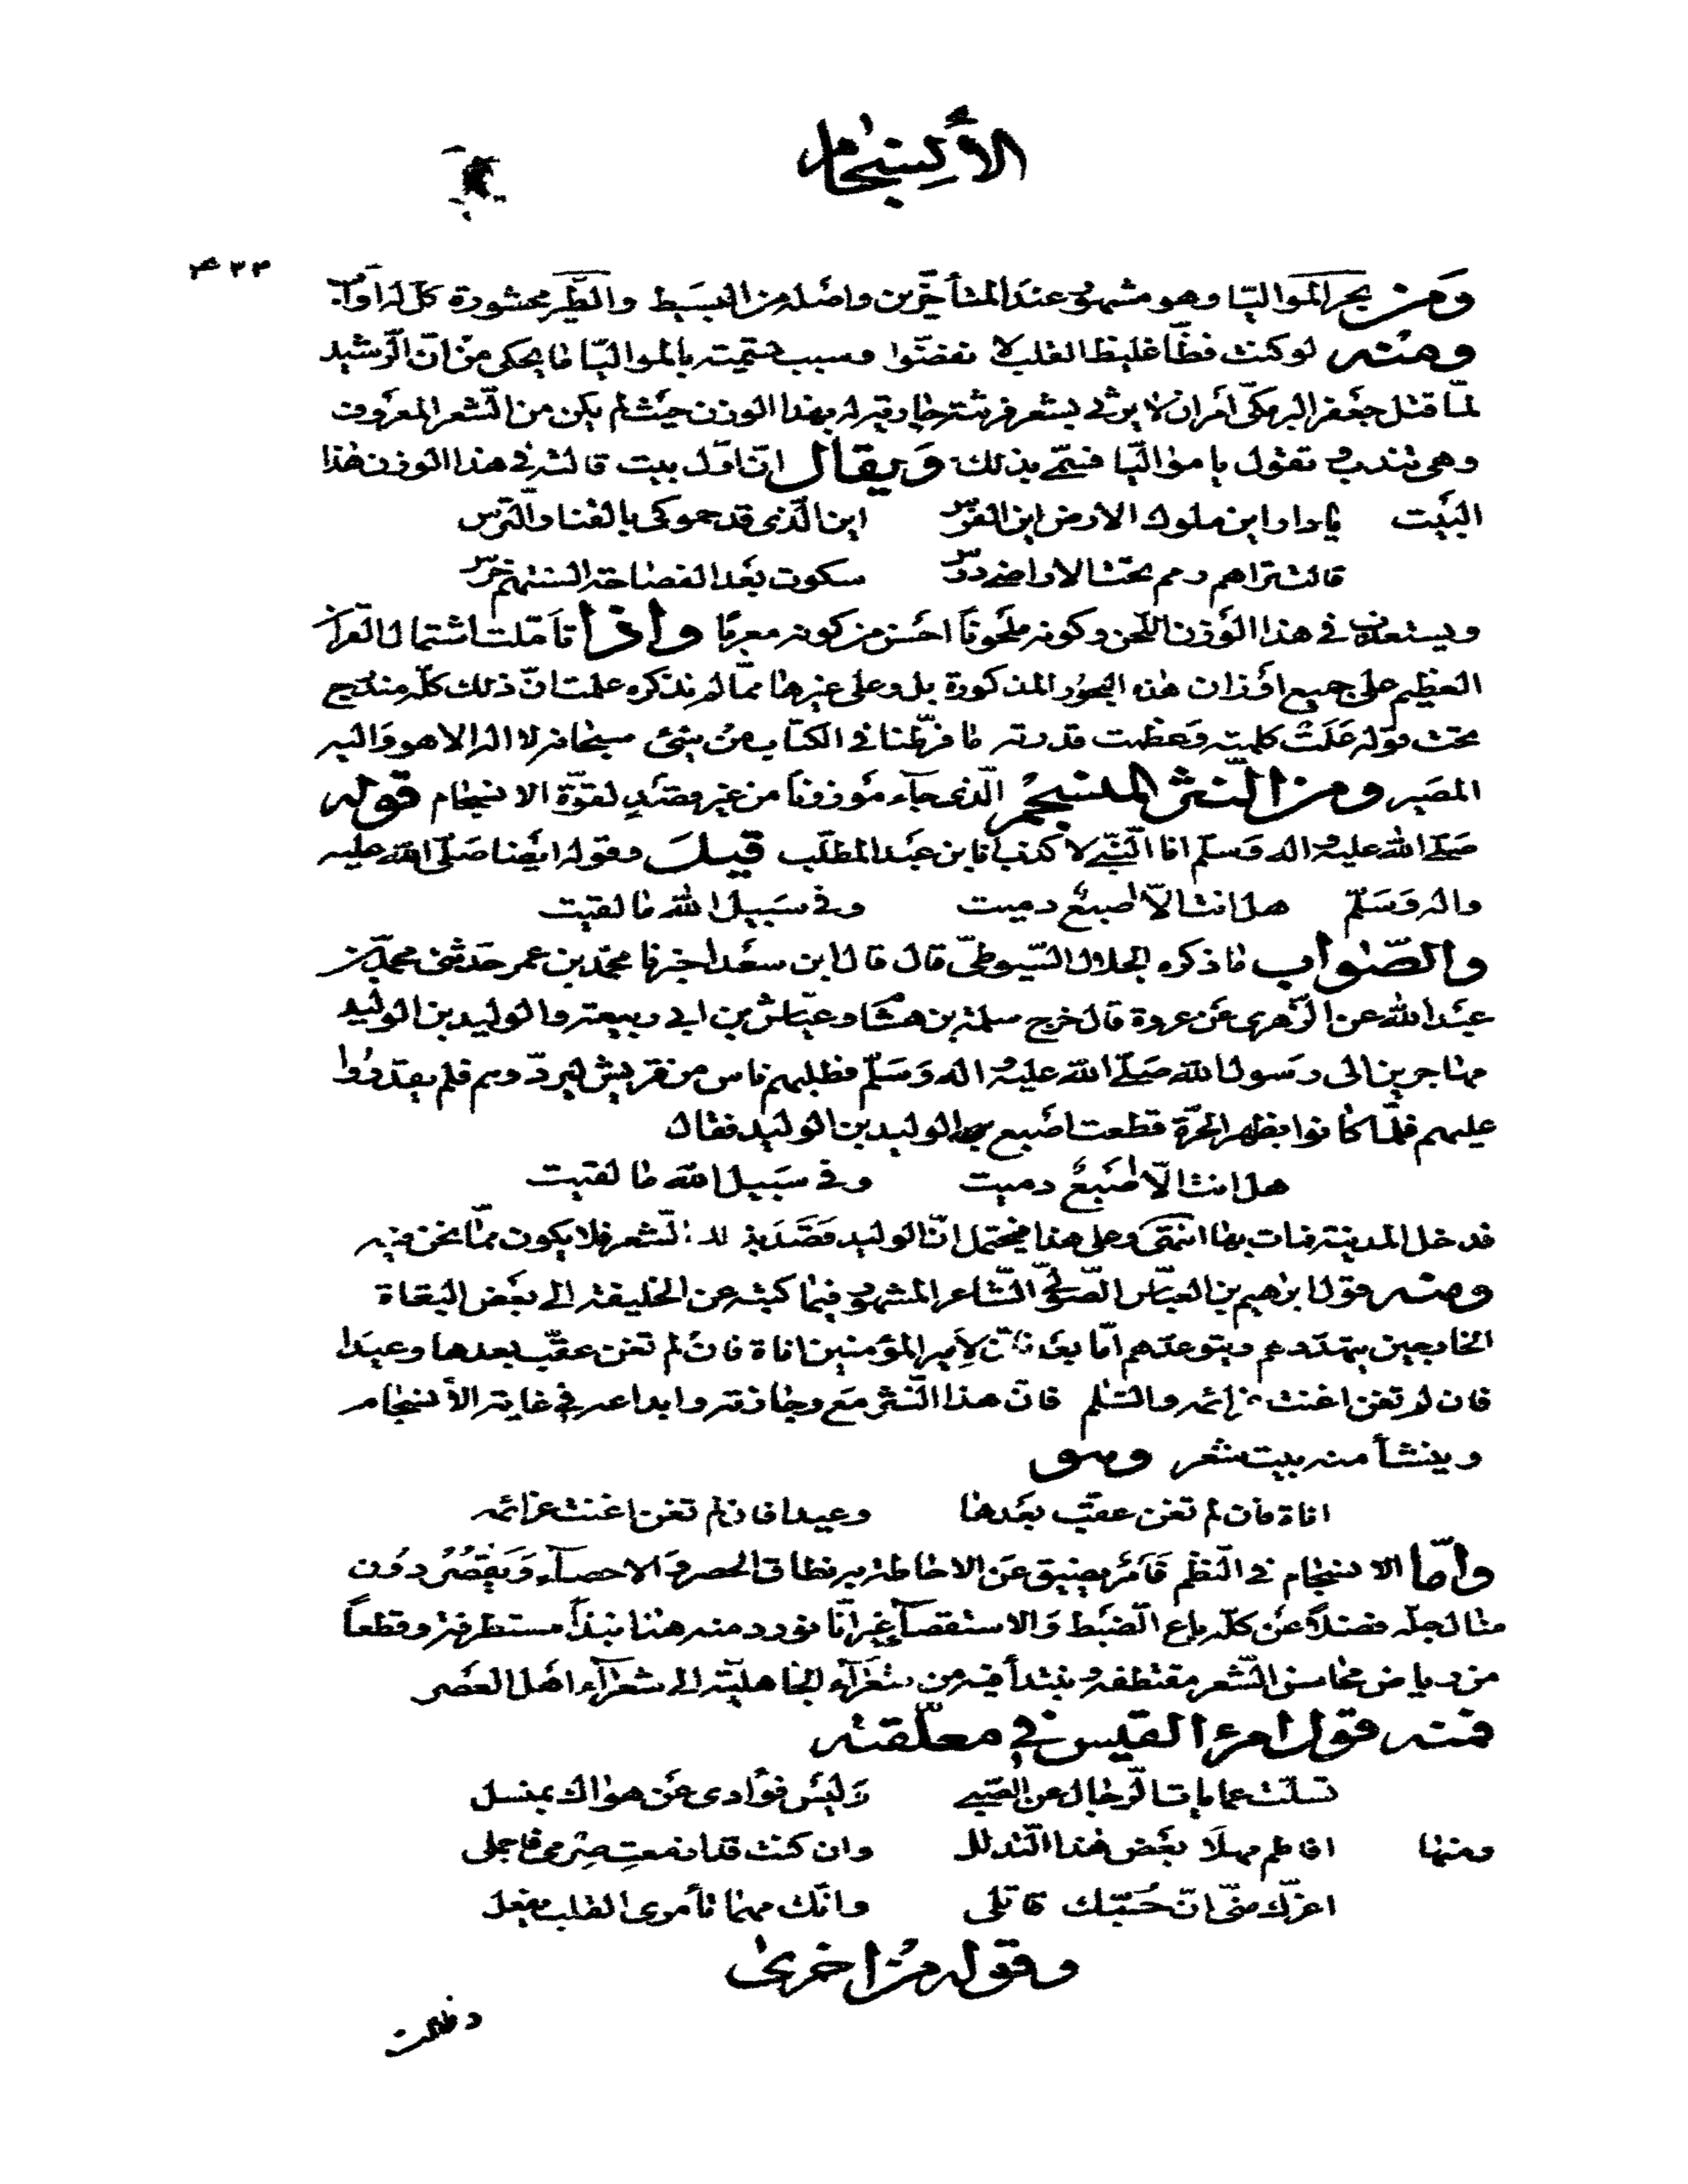 الأنسجام
٤٣٣
ومن بحر المواليّا وهو مشهور عند المتأخّرين واصله من البسيط والطّير محشورة كلّ له اوّاب
ومنه لو كنت فظّا غليظ القلب لا نفضّوا وسبب تسميته بالمواليّا ما يحكى من انّ الرّشيد
لمّا قتل جعفر البرمكى امر ان لا يرثى بشعر فرثته جارية له بهذا الوزن حيث لم يكن من الشعر المعروف
وهى تندب و تقول يا مواليّا فسمّى بذلك ويقال انّ اوّل بيت قالته فى هذا الوزن هذا
البيت يا دار اين ملوك الارض اين الفرس اين الّذى قد حموكى بالقنا والترس
قالت تراهم رمم تحت الاراضى درس سكوت بعد الفصاحة السنتهم خرس
ويستعذب فى هذا الوزن اللّحن وكونه ملحونا احسن من كونه معربا واذا تأمّلت اشتمال القرآن
العظيم على جميع اوزان هذه البحور المذكورة بل وعلى غيرها ممّا لم نذكره علمت انّ ذلك كلّه مندرج
تحت قوله علت كلمته وعظمت قدرته ما فرّطنا فى الكتاب من شئ سبحانه لا اله الا هو واليه
المصير ومن النّثر المنسجم الّذى جاء موزونا من غير قصد لقوّة الانسجام قوله
صلّى الله عليه واله وسلّم انا النّبى لا كذب انا بن عبد المطلّب قيل وقوله ايضا صلّى الله عليه
واله وسلّم هل انت الاّ اصبع دميت وفى سبيل الله ما لقيت
والصّواب ما ذكره الجلال السّيوطىّ قال قال ابن سعد اخبرنا محمّد بن عمر حدّثنى محمّد بن
عبد الله عن الزّهرى عن عروة قال خرج سلمة بن هشام وعيّاش بن ابى ربيعة والوليد بن الوليد
مهاجرين الى رسول الله صلّى الله عليه واله وسلّم فطلبهم ناس من قريش ليردّوهم فلم يقدروا
عليهم فلمّا كانوا بظهر الحرّة قطعت اصبع الوليد بن الوليد فقال
هل انت الاّ اصبع دميت وفى سبيل الله ما لقيت
فدخل المدينة فمات بها انتهى وعلى هذا فيحتمل انّ الوليد قصد بذلك الشعر فلا يكون ممّا نحن فيه
ومنه قول ابرهيم بن العبّاس الصّولىّ الشّاعر المشهور فيما كتبه عن الخليفة الى بعض البغاة
الخارجين يتهدّدهم ويتوعّدهم امّا بعد فانّ لامير المؤمنين اناة فان لم تغن عقّب بعدها وعيدا
فان لم تغن اغنت عزائمه والسّلم فانّ هذا النّثر مع وجازته وابداعه فى غاية الأنسجام
وينشأ منه بيت شعر وهو
اناة فان لم تغن عقّب بعدها وعيدا فان لم تغن اغنت عزائمه
وامّا الانسجام فى النّظم فامر يضيق عن الاحاطة به نطاق الحصر والاحصاء ويقصر دون
منال جلّه فضلا عن كلّه باع الضبط والاستقصاء غير انّا نورد منه هنا نبذا مستطرفة وقطعا
من رياض محاسن الشّعر مقتطفة ونبتدأ فيه من شعراء الجاهليّة الى شعراء اهل العصر
فمنه قول امرء القيس فى معلّقته
تسلّت عمايات الرّجال عن الصّبى وليس فؤادى عن هواك بمنسل
ومنها افاطم مهلا بعض هذا التدلل وان كنت قد ازمعت صرمى فاجملى
اغرّك منّى انّ حبّك قاتلى وانّك مهما تأمرى القلب يفعل
وقوله من اخرى